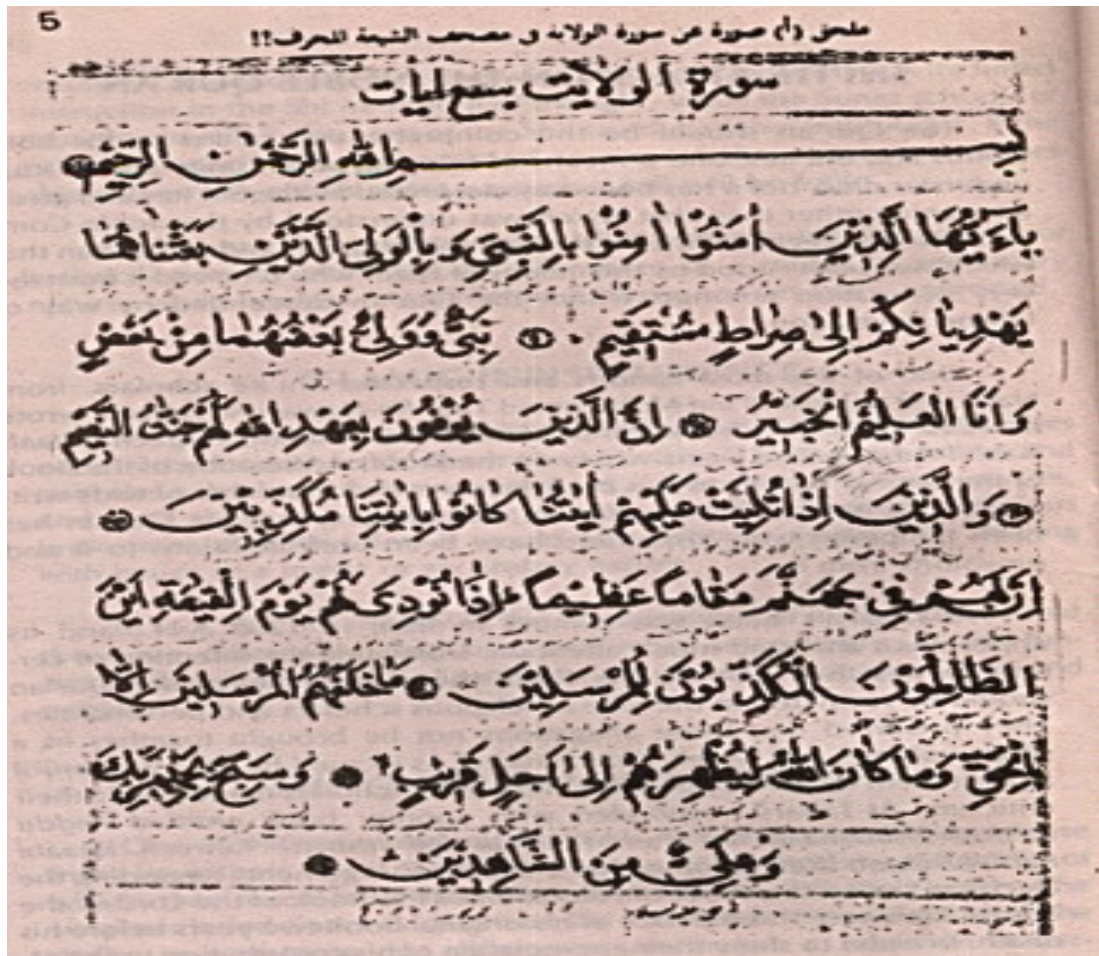 5
ملحق (أ) صورة عن سورة الولاية في مصحف الشيعة المحرف!!
سورة الولايت بسبع ايات
بسم الله الرحمن الرحيم
ياءيها الذين امنوا امنوا بالنبي وبالولى الذين بعثناهما
يهديانكم الى صراط مستقيم ۰ نبى وولى بعضهما من بعض
وانا العليم الخبير ۰ ان الذين يوفون بعهد الله لهم جنت النعيم
۰ والذين اذا تليت عليهم ايتنا كانوا بايتنا مكذبين ۰
ان لهم فى جهنم مقاما عظيما اذا نودى لهم يوم القيمة اين
الظالمون المكذبون للمرسلين ۰ ما خلفهم المرسلين الا
بالحق وما كان الله ليظهرهم الى اجل قريب ۰ وسبح بحمد ربك
وعلى من الشاهدين ۰